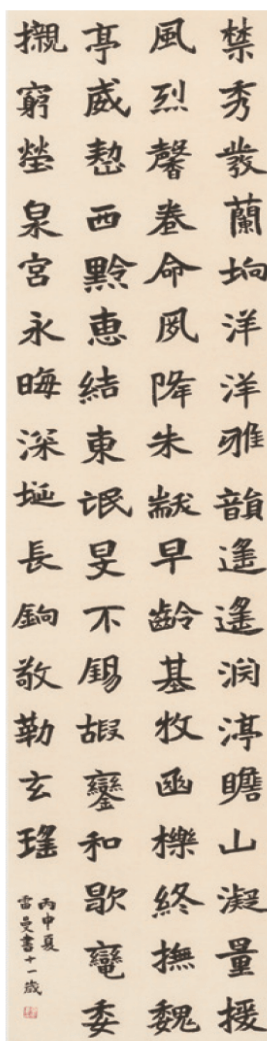 禁秀發蘭坰洋洋雅韻遙遙淵渟瞻山凝量援
風烈馨卷命夙降朱黻早齡基牧函櫟終撫魏
亭威慹西黔惠結東氓旻不錫嘏鑾和歇轡委
櫬窮塋泉宮永晦深埏長銄敬勒玄瑤
丙申夏
雷曼書十一歲